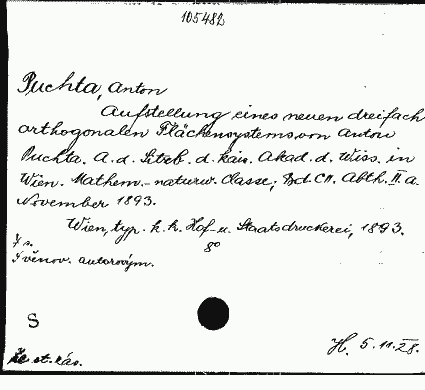 105482
Puchta, Anton
Aufstellung eines neuen dreifach
orthogonalen Flächensystems von Anton
Puchta. A. d. Sitzb. d. kais. Akad. d. Wiss. in
Wien. Mathem.-naturw. Classe; Bd. CII. Abth. II. a.
November 1893.
Wien, typ. k. k. Hof- u. Staatsdruckerei, 1893.
8°
S věnov. autorovým.
S
st. kás.
H. 5.11.28.